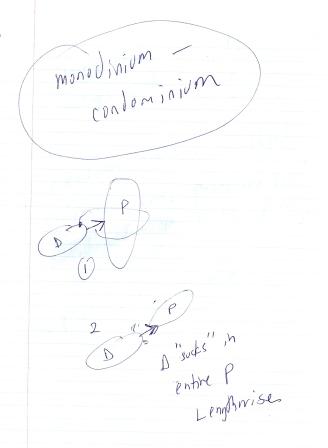 monodinium –
condominium
P
D
1
2
P
D
D "sucks" in
entire P
Lengthwise